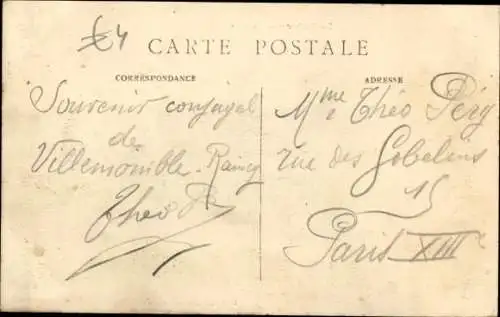 £4
CARTE POSTALE
CORRESPONDANCE
Souvenir conjugal
de
Villemomble-Raincy
Theo
ADRESSE
Mme Théo
rue des Gobelins
15
Paris XIII